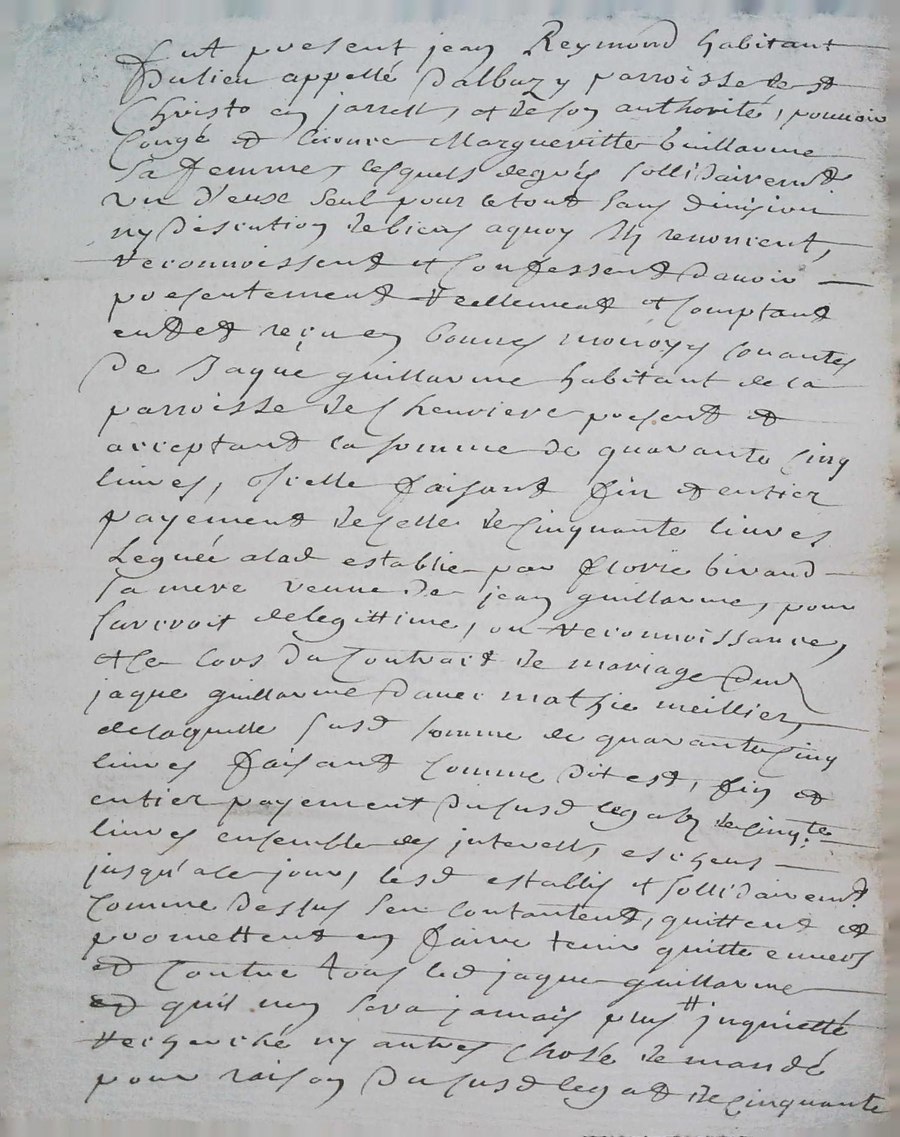 fut present jean Reymond habitant
du lieu appellé dalbuzy parroisse de st
Christo en jarrest, et de son authorité, pouvoir
Congé et licence Margueritte Guillaume
sa femme, lesquels de gré sollidairement
un d'eux seul pour le tout sans division
ny discution de biens a quoy ils renoncent,
reconnoissent et Confessent d'avoir
presentement reellement et Comptant
eu et reçu en bonnes monoyes courantes
De Jaque guillaume habitant de la
parroisse de Chevriere present et
acceptant la somme de quarante Cinq
livres, Icelle faisant fin et entier
payement de celle de Cinquante livres
Leguée a lad establie par florie birand
sa mere veuve de jean guillaume, pour
survroit de legittime, ou reconnoissance,
et ce lors du Contract de mariage dud
jaque guillaume d'avec mathie meillier,
de laquelle susd somme de quarante Cinq
livres faisant Comme dit est, fin et
entier payement du susd legat de Cinqte
livres ensemble des interests, escheus
jusqu'a ce jour, lesd establis et sollidairement
Comme dessus s'en Contantent, quittent et
promettent en faire tenir quitte envers
et Contre tous led jaque guillaume
et qu'il n'en sera jamais plus inquietté
recherché ny autres chose demandé
pour raison du susd legat de Cinquante